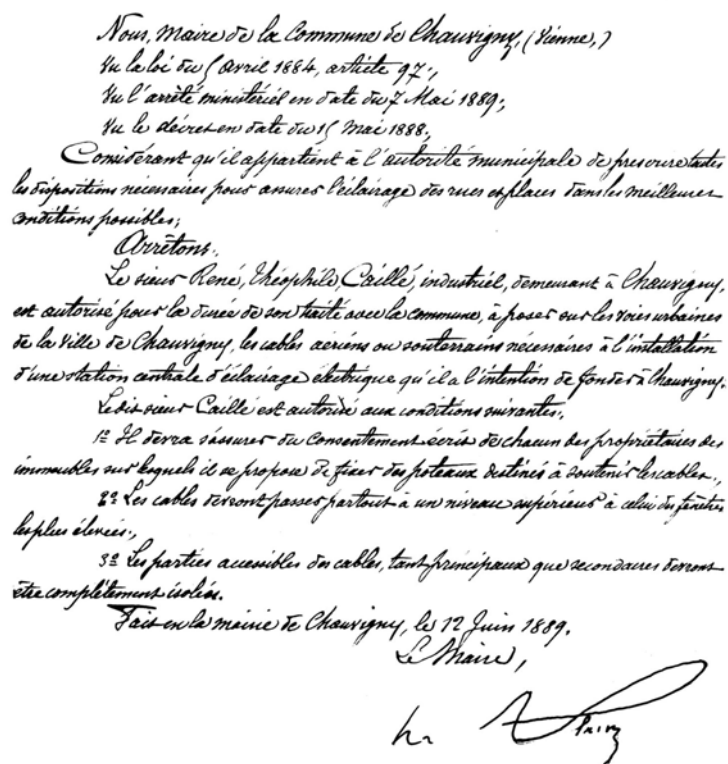 Nous, Maire de la Commune de Chauvigny, (Vienne,)
Vu la loi du 5 avril 1884, article 97;
Vu l'arrêté ministériel en date du 7 Mai 1889;
Vu le décret en date du 15 Mai 1888;
Considérant qu'il appartient à l'autorité municipale de prescrire toutes
les dispositions nécessaires pour assurer l'éclairage des rues et places dans les meilleures
conditions possibles;
Arrêtons:
Le sieur René, Théophile, Caillé, industriel, demeurant à Chauvigny,
est autorisé pour la durée de son traité avec la commune, à poser sur les voies urbaines
de la ville de Chauvigny, les cables aériens ou souterrains nécessaires à l'installation
d'une station centrale d'éclairage électrique qu'il a l'intention de fonder à Chauvigny.
Le dit sieur Caillé est autorisé aux conditions suivantes:
1º Il devra s'assurer du consentement écrit de chacun des propriétaires des
immeubles sur lesquels il se propose de fixer des poteaux destinés à soutenir les cables;
2º Les cables devront passer partout à un niveau supérieur à celui des fenêtres
les plus élevées;
3º Les parties accessibles des cables, tant principaux que secondaires devront
être complètement isolées.
Fait en la mairie de Chauvigny, le 12 Juin 1889.
Le Maire,